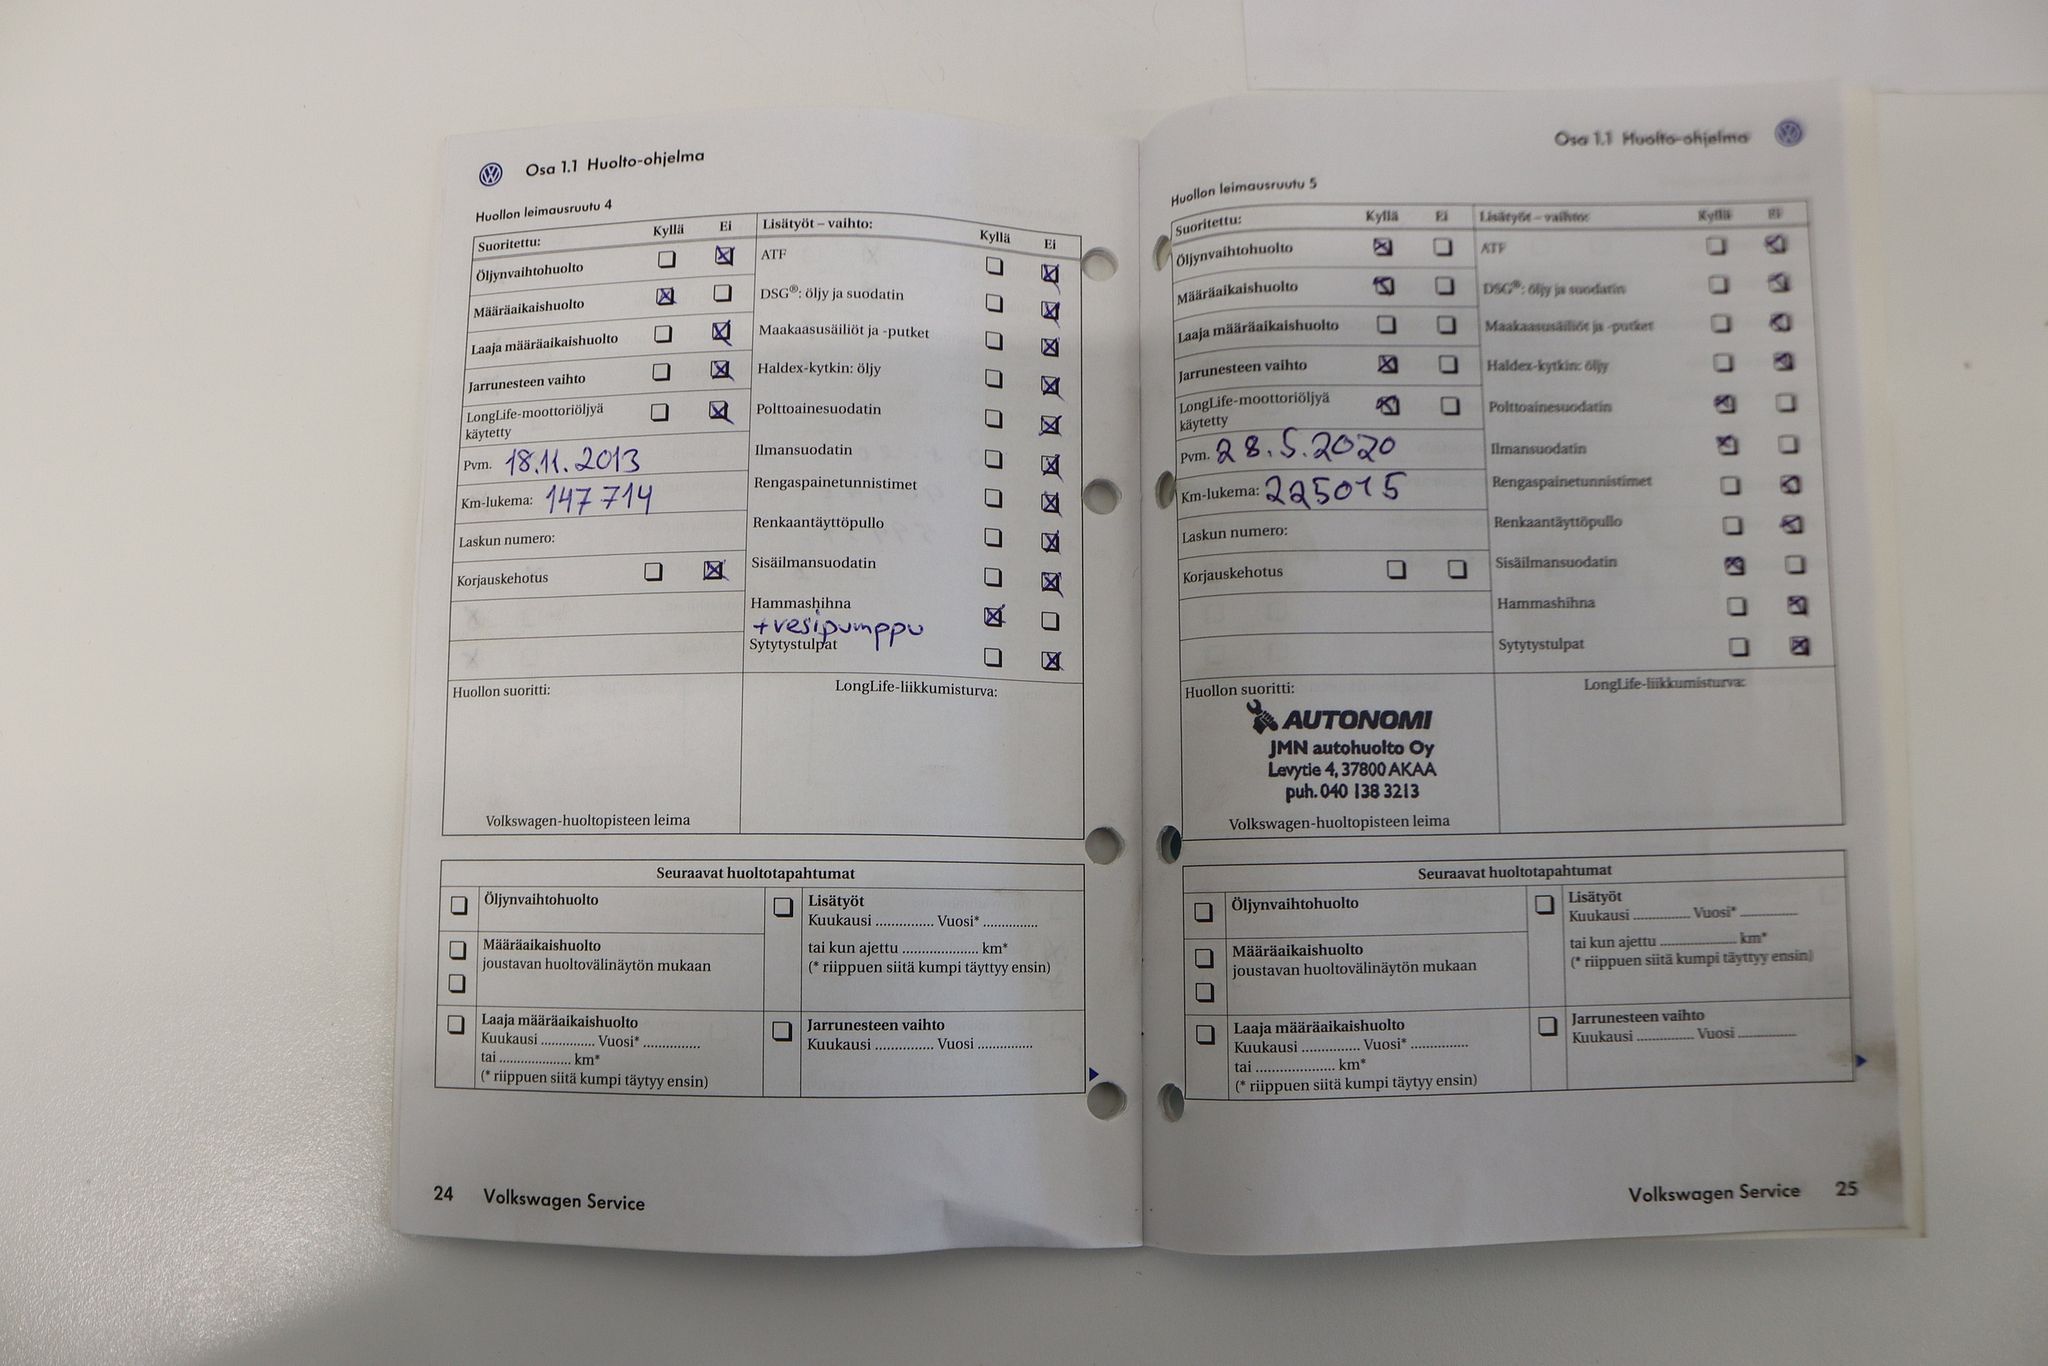 Osa 1.1 Huolto-ohjelma
Huollon leimausruutu 4
Suoritettu: Kyllä Ei
Öljynvaihtohuolto
Määräaikaishuolto
Laaja määräaikaishuolto
Jarrunesteen vaihto
LongLife-moottoriöljyä
käytetty
Pvm. 18.11.2013
Km-lukema: 147 714
Laskun numero:
Korjauskehotus
Lisätyöt – vaihto: Kyllä Ei
ATF
DSG®: öljy ja suodatin
Maakaasusäiliöt ja -putket
Haldex-kytkin: öljy
Polttoainesuodatin
Ilmansuodatin
Rengaspainetunnistimet
Renkaantäyttöpullo
Sisäilmansuodatin
Hammashihna
+vesipumppu
Sytytystulpat
Huollon suoritti:
Volkswagen-huoltopisteen leima
LongLife-liikkumisturva:
Seuraavat huoltotapahtumat
Öljynvaihtohuolto
Määräaikaishuolto
joustavan huoltovälinäytön mukaan
Laaja määräaikaishuolto
Kuukausi ............... Vuosi* ...............
tai .................... km*
(* riippuen siitä kumpi täytyy ensin)
Lisätyöt
Kuukausi ............... Vuosi* ...............
tai kun ajettu .................... km*
(* riippuen siitä kumpi täyttyy ensin)
Jarrunesteen vaihto
Kuukausi ............... Vuosi ...............
24 Volkswagen Service
Osa 1.1 Huolto-ohjelma
Huollon leimausruutu 5
Suoritettu: Kyllä Ei
Öljynvaihtohuolto
Määräaikaishuolto
Laaja määräaikaishuolto
Jarrunesteen vaihto
LongLife-moottoriöljyä
käytetty
Pvm. 28.5.2020
Km-lukema: 225015
Laskun numero:
Korjauskehotus
Lisätyöt – vaihto: Kyllä Ei
ATF
DSG®: öljy ja suodatin
Maakaasusäiliöt ja -putket
Haldex-kytkin: öljy
Polttoainesuodatin
Ilmansuodatin
Rengaspainetunnistimet
Renkaantäyttöpullo
Sisäilmansuodatin
Hammashihna
Sytytystulpat
Huollon suoritti:
AUTONOMI
JMN autohuolto Oy
Levytie 4, 37800 AKAA
puh. 040 138 3213
Volkswagen-huoltopisteen leima
LongLife-liikkumisturva:
Seuraavat huoltotapahtumat
Öljynvaihtohuolto
Määräaikaishuolto
joustavan huoltovälinäytön mukaan
Laaja määräaikaishuolto
Kuukausi ............... Vuosi* ...............
tai .................... km*
(* riippuen siitä kumpi täytyy ensin)
Lisätyöt
Kuukausi ............... Vuosi* ...............
tai kun ajettu .................... km*
(* riippuen siitä kumpi täyttyy ensin)
Jarrunesteen vaihto
Kuukausi ............... Vuosi ...............
Volkswagen Service 25